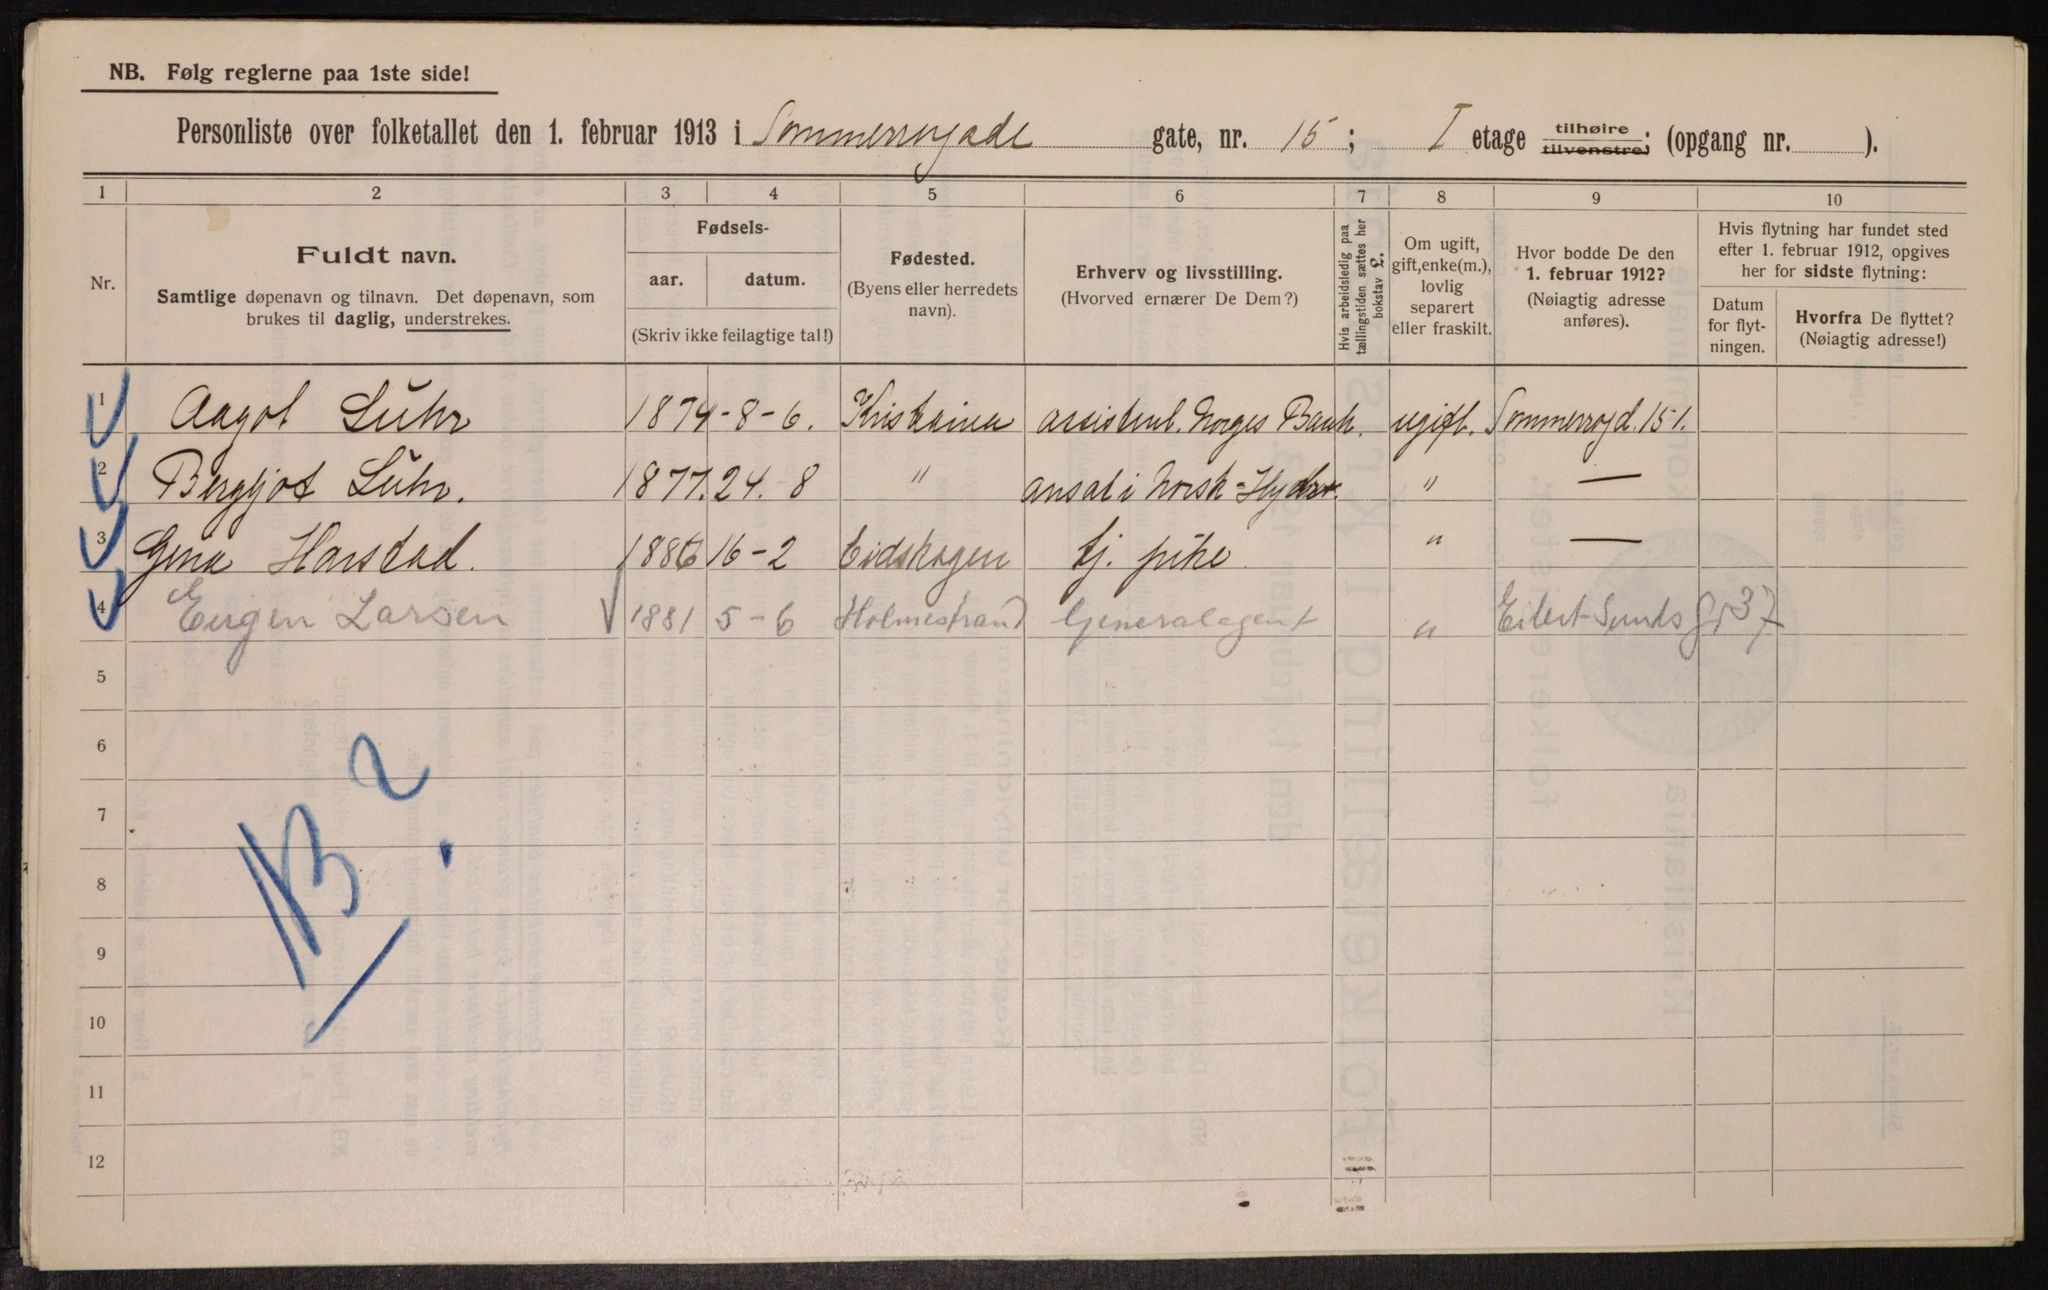 NB. Følg reglerne paa 1ste side!
Personliste over folketallet den 1. februar 1913 i Sommerrogade gate, nr. 15; I etage tilhøire tilvenstre; (opgang nr. ).
1 2 3 4 5 6 7 8 9 10
Nr.
Fuldt navn.
Samtlige døpenavn og tilnavn. Det døpenavn, som
brukes til daglig, understrekes.
Fødsels-
aar. datum.
(Skriv ikke feilagtige tal!)
Fødested.
(Byens eller herredets
navn).
Erhverv og livsstilling.
(Hvorved ernærer De Dem?)
Hvis arbeidsledig paa
tællingstiden sættes her
bokstav L.
Om ugift,
gift, enke(m.),
lovlig
separert
eller fraskilt.
Hvor bodde De den
1. februar 1912?
(Nøiagtig adresse
anføres).
Hvis flytning har fundet sted
efter 1. februar 1912, opgives
her for sidste flytning:
Datum
for flyt-
ningen.
Hvorfra De flyttet?
(Nøiagtig adresse!)
1 Aagot Lühr 1874 -8-6. Kristiania assistent. Norges Bank. ugift. Sommerrogd. 15 I.
2 Bergljot Lühr. 1877. 24. 8 " ansat i Norsk-Hydro. " —
3 Gina Harstad. 1886 16-2 Eidskogen tj. pike " —
4 Eugen Larsen 1881 5-6 Holmestrand Generalagent " Eilert Sunds G 37
5
6
7
8
9
10
11
12
NB?